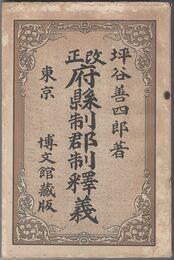 坪谷善四郎著
改正
府縣制郡制釋義
東京
博文館藏版